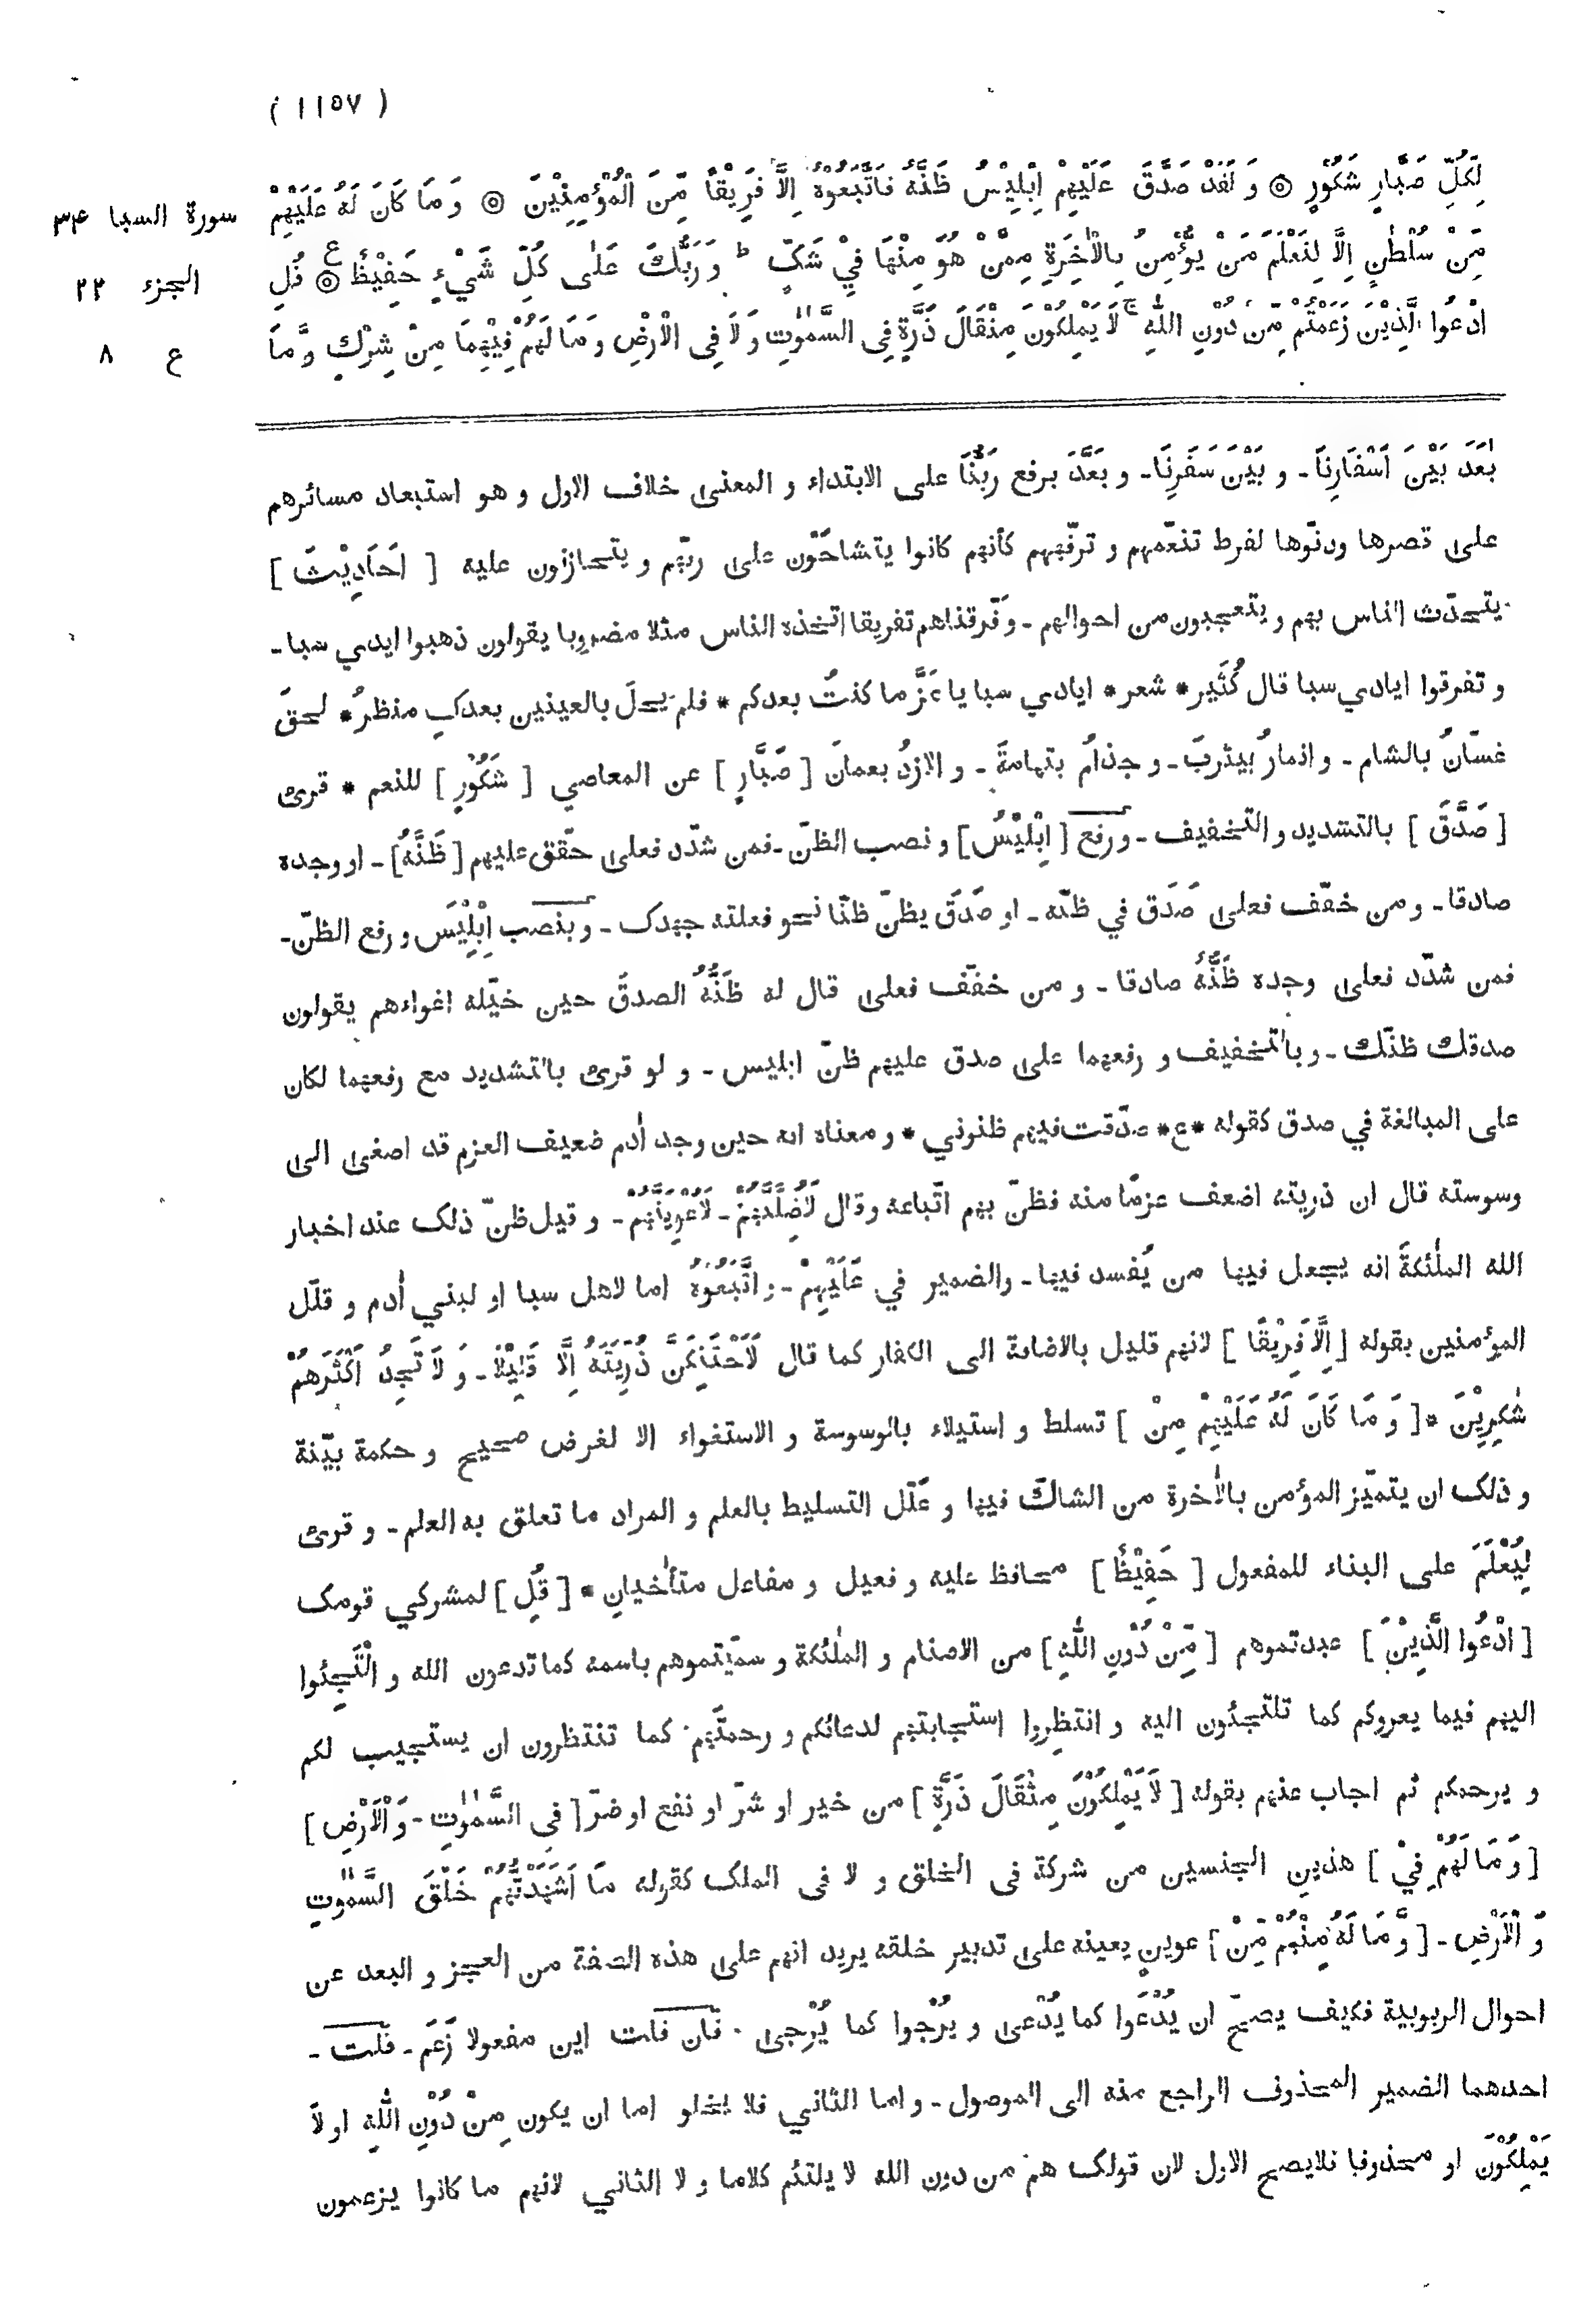 ( ١١٥٧ )
لِكُلِّ صَبَّارٍ شَكُوْرٍ ۞ وَ لَقَدْ صَدَّقَ عَلَيْهِمْ اِبْلِيْسُ ظَنَّهٗ فَاتَّبَعُوْهُ اِلَّا فَرِيْقًا مِّنَ الْمُؤْمِنِيْنَ ۞ وَ مَا كَانَ لَهُ عَلَيْهِمْ
سورة السبا ٣٤
مِّنْ سُلْطٰنٍ اِلَّا لِنَعْلَمَ مَنْ يُّؤْمِنُ بِالْاٰخِرَةِ مِمَّنْ هُوَ مِنْهَا فِيْ شَكٍّ ط وَ رَبُّكَ عَلٰى كُلِّ شَيْءٍ حَفِيْظٌ ۞ ع قُلِ
الجزء ٢٢
ادْعُوا الَّذِيْنَ زَعَمْتُمْ مِّنْ دُوْنِ اللّٰهِ ج لَا يَمْلِكُوْنَ مِثْقَالَ ذَرَّةٍ فِى السَّمٰوٰتِ وَ لَا فِى الْاَرْضِ وَ مَا لَهُمْ فِيْهِمَا مِنْ شِرْكٍ وَّ مَا
ع ٨
بَعَدَ بَيْنَ اَسْفَارِنَا - و بَيْنَ سَفَرِنَا - و بَعَّدَ برفع رَبُّنَا على الابتداء و المعنى خلاف الاول و هو استبعاد مسائرهم
على قصرها ودنّوها لفرط تنعّمهم و ترفّههم كأنهم كانوا يتشاحّون على ربّهم و يتحازنون عليه [ اَحَادِيْثَ ]
يتحدّث الناس بهم و يتعجبون من احوالهم - و فرقناهم تفريقا اتخذه الناس مثلا مضروبا يقولون ذهبوا ايدي سبا -
و تفرقوا ايادي سبا قال كُثَير * شعر * ايادي سبا يا عَزَّ ما كنتُ بعدكم * فلم يَحلَ بالعينين بعدكِ منظرُ * لحقَ
غسّانُ بالشام - و انمارُ بيثربَ - و جذامُ بتهامةَ - و الازدُ بعمانَ [ صَبَّارٍ ] عن المعاصي [ شَكُوْرٍ ] للنعم * قرئ
[ صَدَّقَ ] بالتشديد و التخفيف - و رَفع [ اِبْلِيْسُ ] و نصب الظنّ - فمن شدّد فعلى حقّق عليهم [ ظَنَّهُ ] - او وجده
صادقا - و من خفّف فعلى صَدَق في ظنّه - او صَدَقَ يظنّ ظنّا نحو فعلته جهدك - و بنصب اِبْلِيْسَ و رفع الظنّ -
فمن شدّد فعلى وجده ظَنُّهُ صادقا - و من خفّف فعلى قال له ظَنُّهُ الصدقَ حين خيّله اغواءهم يقولون
صدقك ظنّك - و بالتخفيف و رفعهما على صدق عليهم ظنّ ابليس - و لو قرئ بالتشديد مع رفعهما لكان
على المبالغة في صدق كقوله * ع * صدّقت فيهم ظنوني * و معناه انه حين وجد اٰدم ضعيف العزم قد اصغى الى
وسوسته قال ان ذريته اضعف عزمًا منه فظنّ بهم اتّباعه وقال لَاُضِلَّنَّهُمْ - لَاُغْوِيَنَّهُمْ - و قيل ظنّ ذلك عند اخبار
الله الملٰئكةَ انه يجعل فيها من يُفسد فيها - والضمير في عَلَيْهِمْ - و اتَّبَعُوْهُ اما لاهل سبا او لبني اٰدم و قلّل
المؤمنين بقوله [ اِلَّا فَرِيْقًا ] لانهم قليل بالاضافة الى الكفار كما قال لَاَحْتَنِكَنَّ ذُرِّيَّتَهُ اِلَّا قَلِيْلًا - وَ لَا تَجِدُ اَكْثَرَهُمْ
شٰكِرِيْنَ * [ وَ مَا كَانَ لَهُ عَلَيْهِمْ مِنْ ] تسلط و استيلاء بالوسوسة و الاستغواء الا لغرض صحيح و حكمة بيّنة
و ذلك ان يتميّز المؤمن بالاٰخرة من الشاكّ فيها و علّل التسليط بالعلم و المراد ما تعلق به العلم - و قرئ
لِيُعْلَمَ على البناء للمفعول [ حَفِيْظٌ ] محافظ عليه و فعيل و مفاعل متأٰخيانِ * [ قُلِ ] لمشركي قومك
[ ادْعُوا الَّذِيْنَ ] عبدتموهم [ مِّنْ دُوْنِ اللّٰهِ ] من الاصنام و الملٰئكة و سمّيتموهم باسمه كما تدعون الله و الْتَجِئوا
اليهم فيما يعروكم كما تلتجئون اليه و انتظِروا استجابتهم لدعائكم و رحمتَهم كما تنتظرون ان يستجيب لكم
و يرحمكم ثم اجاب عنهم بقوله [ لَا يَمْلِكُوْنَ مِثْقَالَ ذَرَّةٍ ] من خير او شرّ او نفع او ضرّ [ فِى السَّمٰوٰتِ - وَ الْاَرْضِ ]
[ وَ مَا لَهُمْ فِيْ ] هذينِ الجنسين من شركة فى الخلق و لا فى الملك كقوله مَا اَشْهَدْتُّهُمْ خَلْقَ السَّمٰوٰتِ
وَ الْاَرْضِ - [ وَّ مَا لَهُ مِنْهُمْ مِّنْ ] عوينٍ يعينه على تدبير خلقه يريد انهم على هذه الصفة من العجز و البعد عن
احوال الربوبية فكيف يصحّ ان يُدْعَوا كما يُدْعى و يُرْجوا كما يُرْجى - فان قلت اين مفعولا زَعَمَ - قلت -
احدهما الضمير المحذوف الراجع منه الى الموصول - و اما الثاني فلا يخلو اما ان يكون مِنْ دُوْنِ اللّٰهِ او لَا
يَمْلِكُوْنَ او محذوفا فلايصح الاول لان قولك هم من دون الله لا يلتئم كلاما و لا الثاني لانهم ما كانوا يزعمون